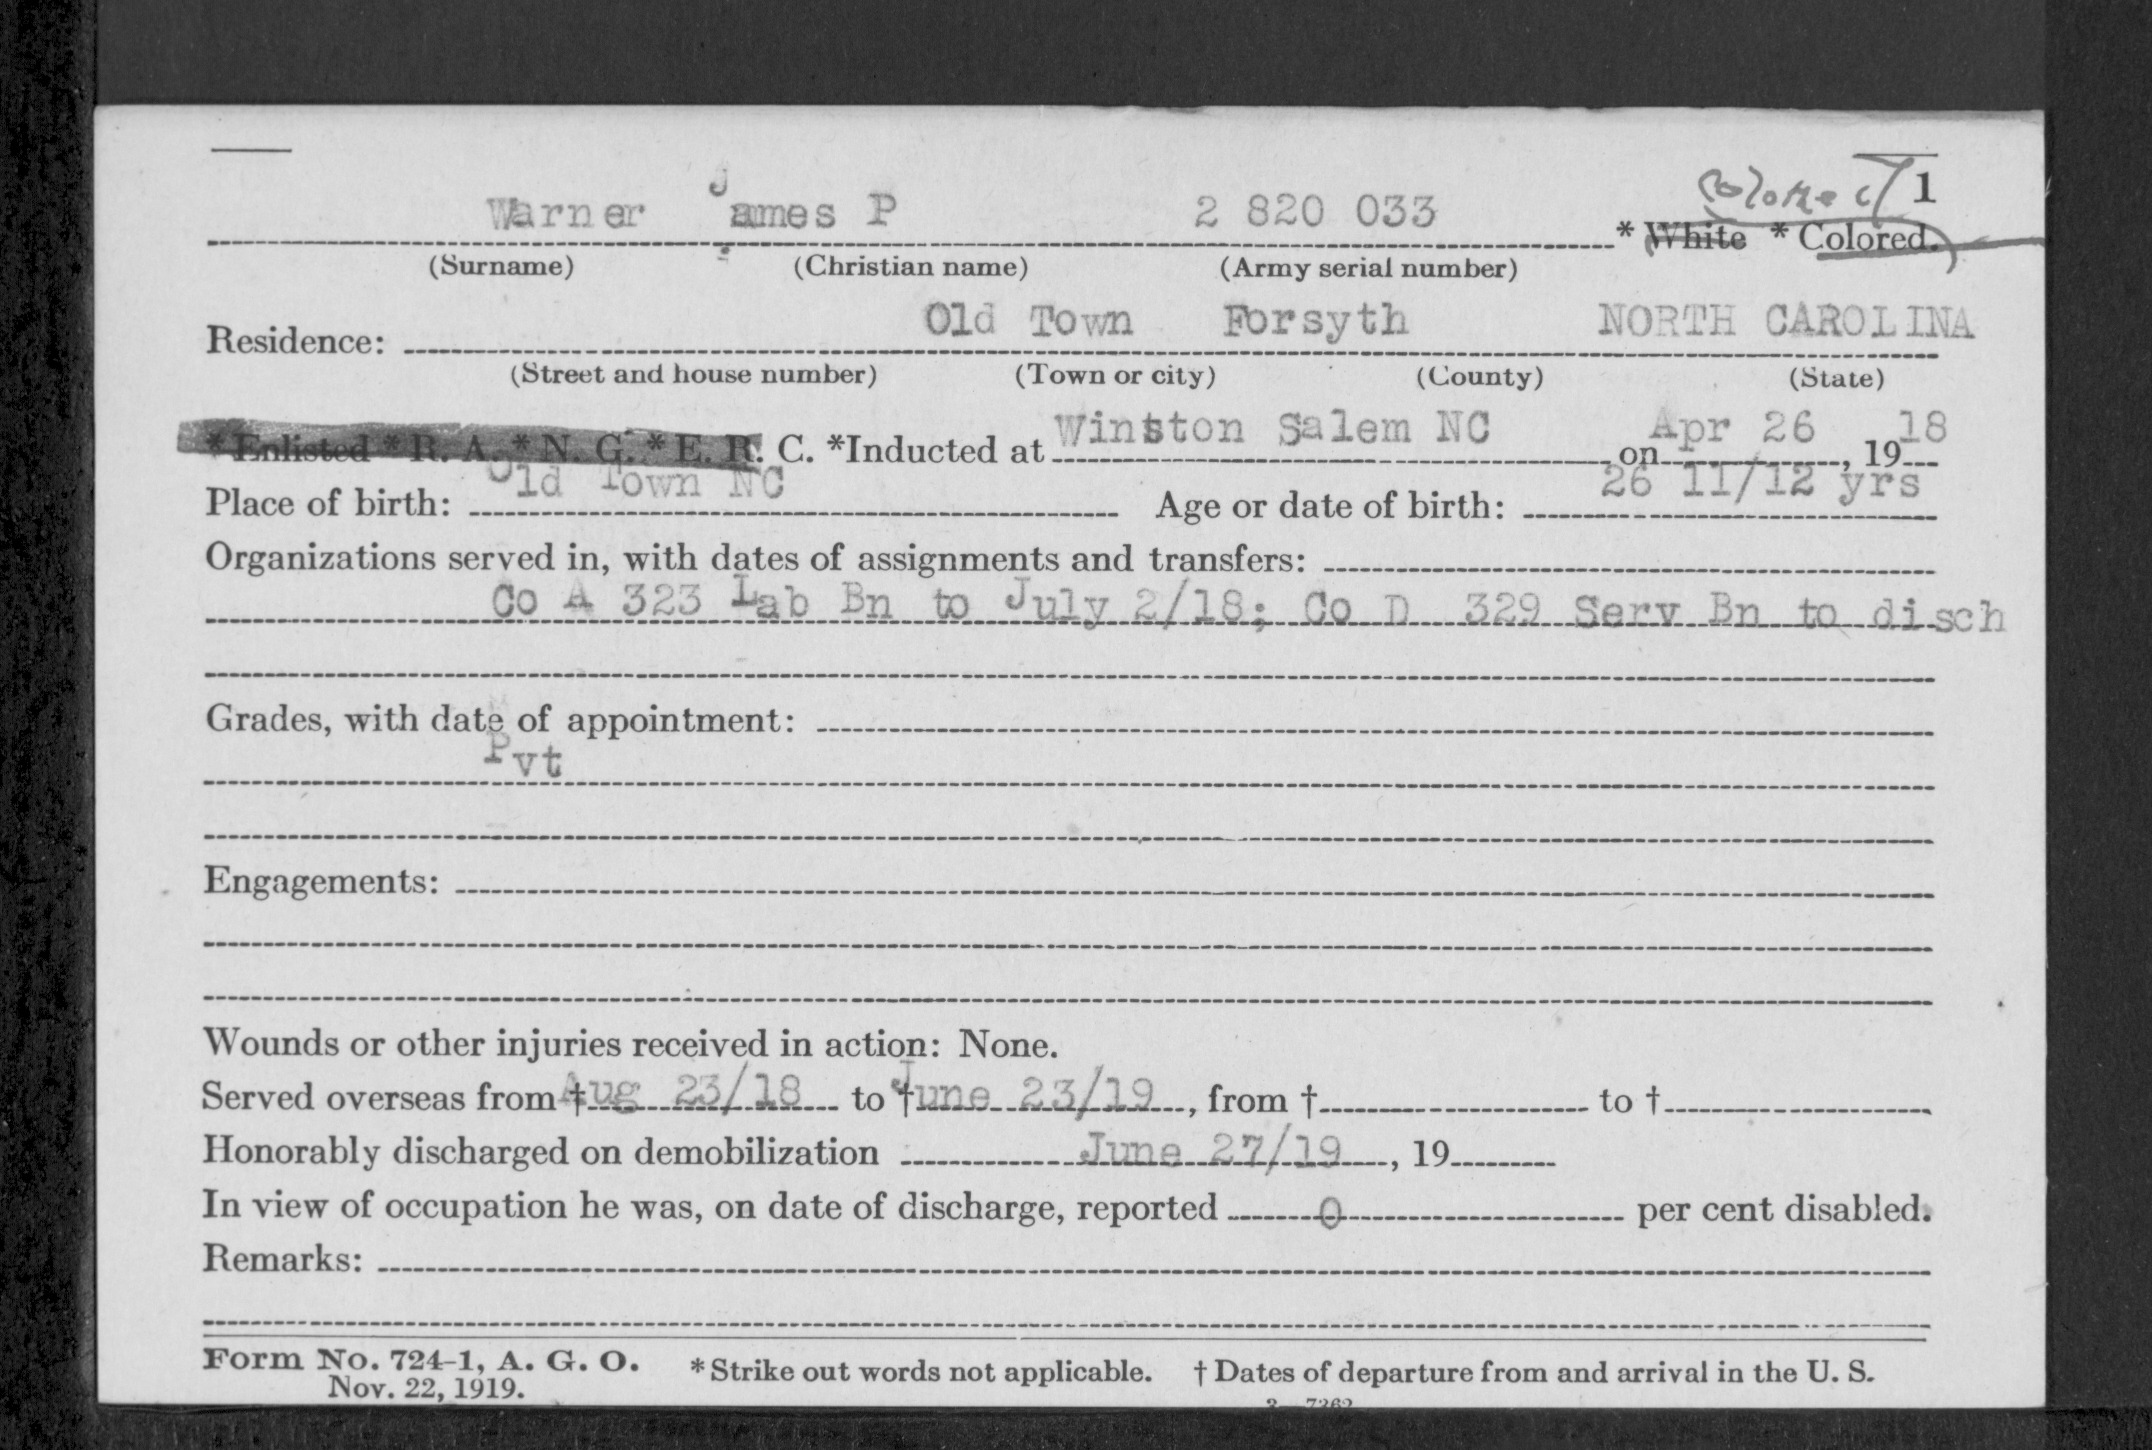 Colored 1
Warner James P 2 820 033 * White * Colored.
(Surname) (Christian name) (Army serial number)
Old Town Forsyth NORTH CAROLINA
Residence:
(Street and house number) (Town or city) (County) (State)
* Enlisted * R. A. * N. G. * E. R. C. *Inducted at Winston Salem NC on Apr 26, 1918
Place of birth: Old Town NC Age or date of birth: 26 11/12 yrs
Organizations served in, with dates of assignments and transfers:
Co A 323 Lab Bn to July 2/18; Co D 329 Serv Bn to disch
Grades, with date of appointment:
Pvt
Engagements:
Wounds or other injuries received in action: None.
Served overseas from † Aug 23/18 to † June 23/19, from † to †
Honorably discharged on demobilization June 27/19, 19
In view of occupation he was, on date of discharge, reported 0 per cent disabled.
Remarks:
Form No. 724-1, A. G. O. * Strike out words not applicable. † Dates of departure from and arrival in the U. S.
Nov. 22, 1919.